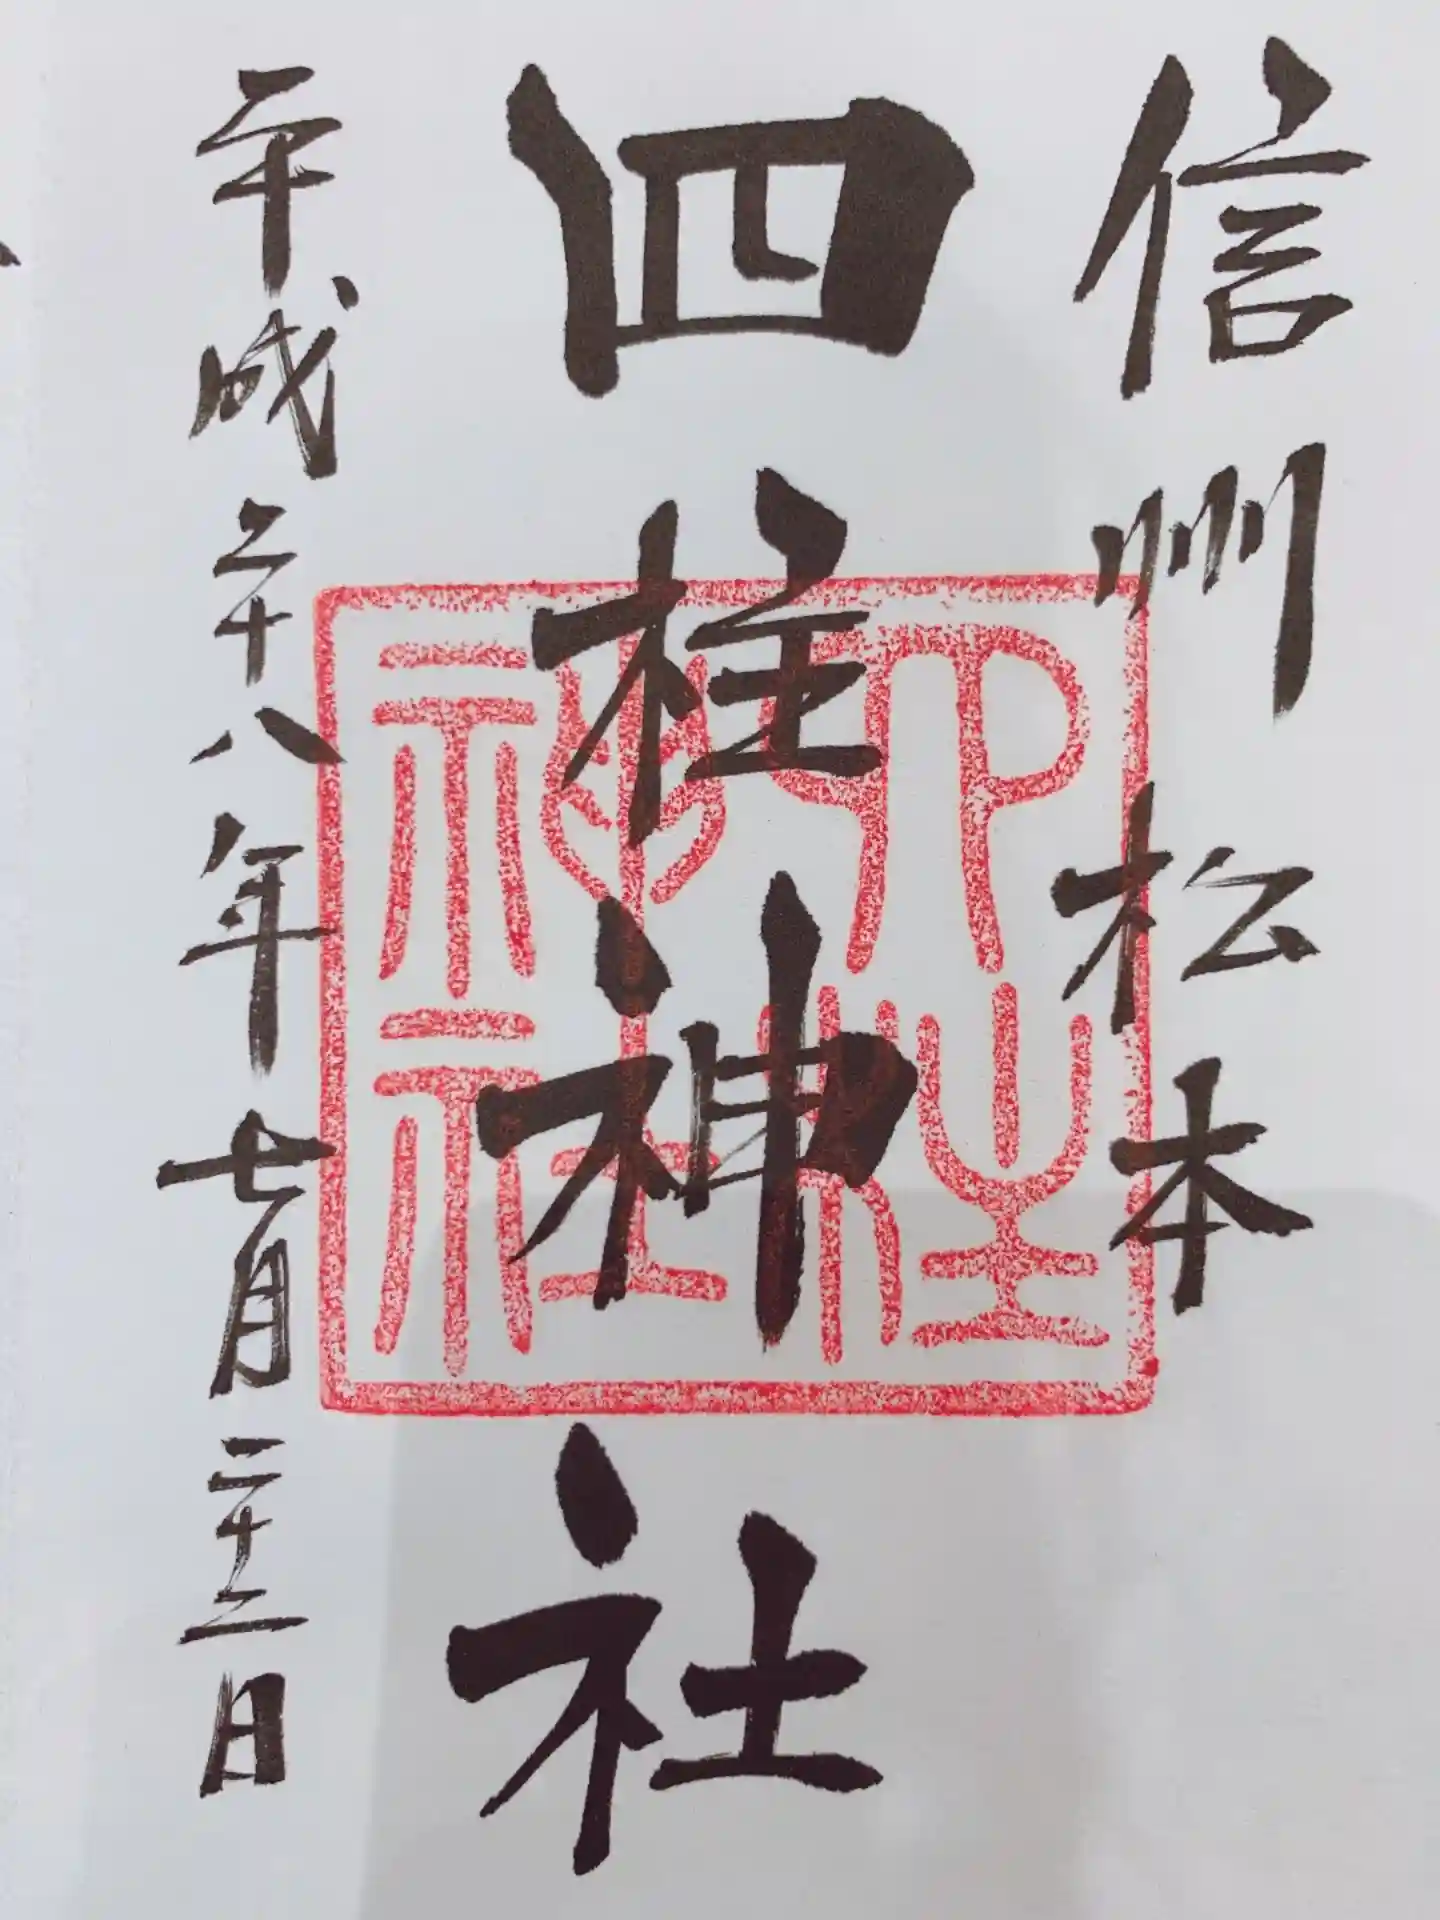 信州松本
四柱神社
平成二十八年七月二十二日
四柱
神社